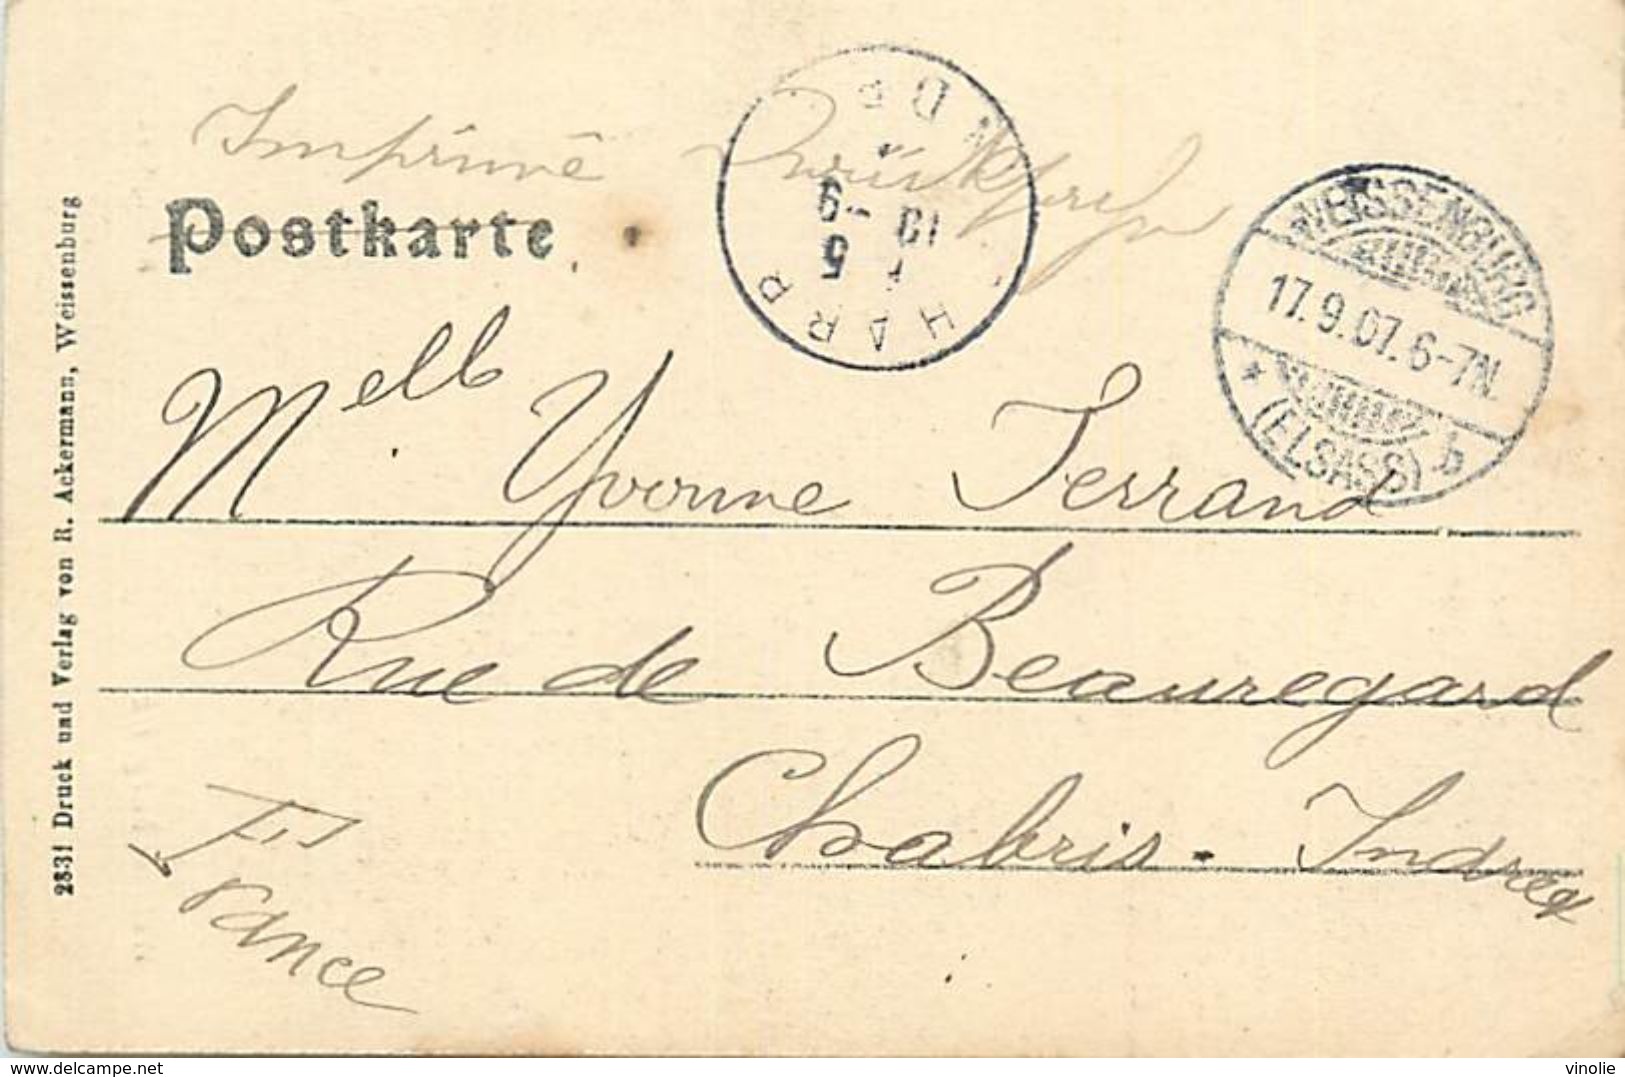 Imprimé
Postkarte
WEISSENBURG
17.9.07. 6-7N.
* (ELSASS) b
Melle Yvonne Ferrand
Rue de Beauregard
Chabris - Indre
France
2831 Druck und Verlag von R. Ackermann, Weissenburg
www.delcampe.net
vinolie